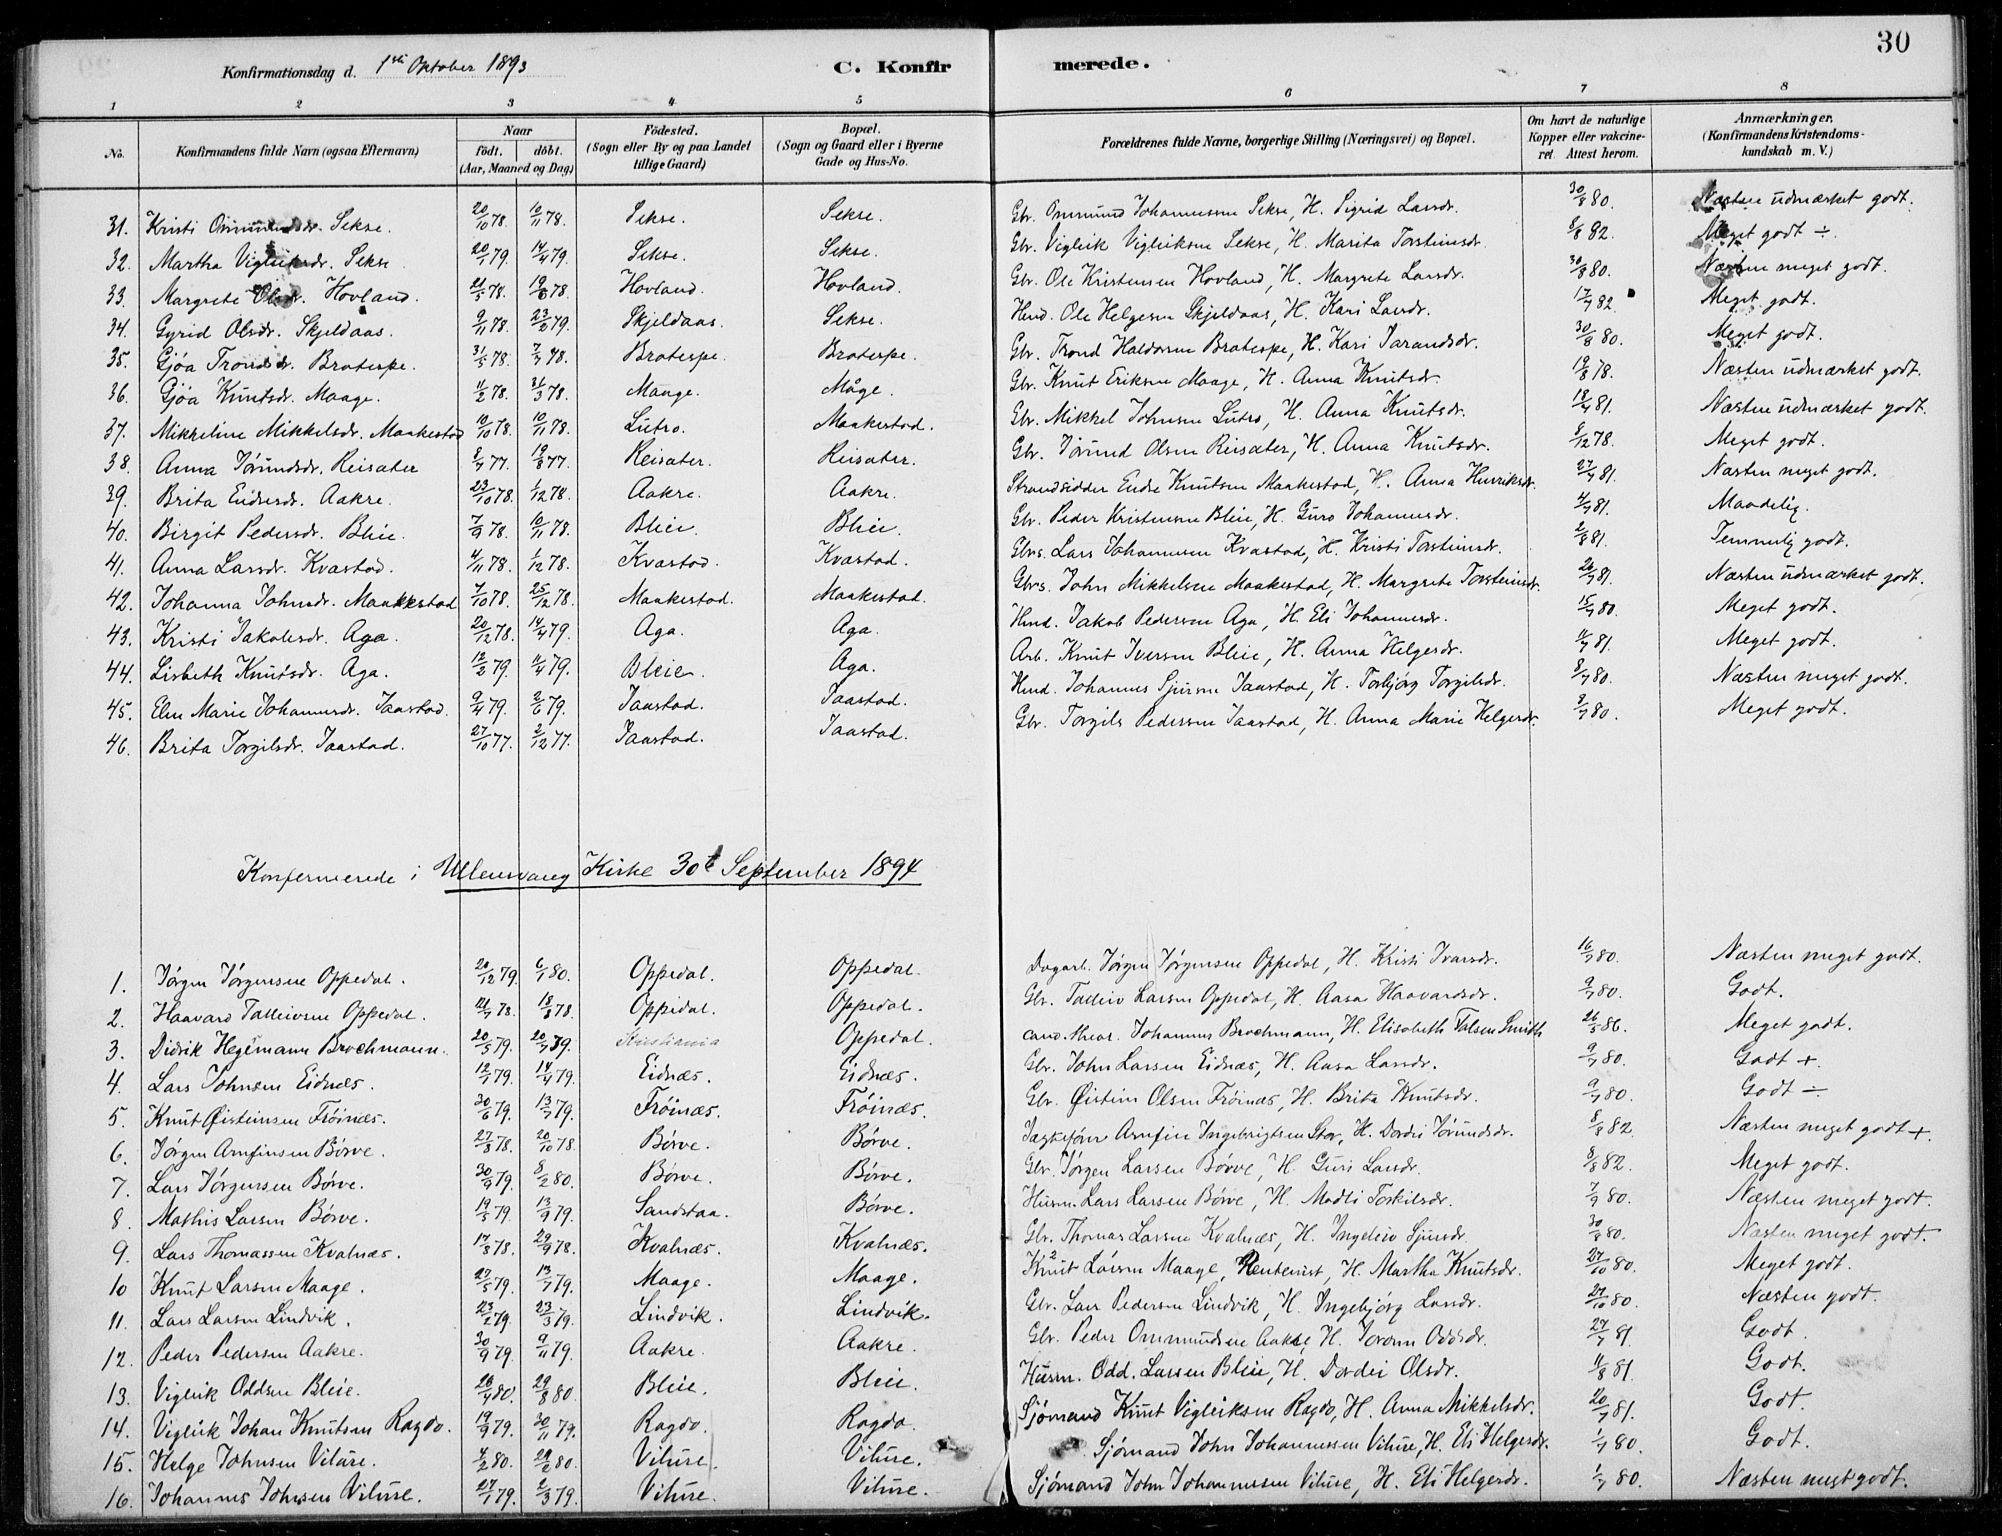 30
Konfirmationsdag d. 1ste Oktober 1893 C. Konfirmerede.
1 2 3 4 5 6 7 8
No. Konfirmandens fulde Navn (ogsaa Efternavn) Naar födt. döbt. (Aar, Maaned og Dag) Födested. (Sogn eller By og paa Landet tillige Gaard) Bopæl. (Sogn og Gaard eller i Byerne Gade og Hus-No. Forældrenes fulde Navne, borgerlige Stilling (Næringsvei) og Bopæl. Om havt de naturlige Kopper eller vakcineret. Attest herom. Anmærkninger, (Konfirmandens Kristendomskundskab m. V.)
31. Kristi Ommundsdr. Sekse. 20/10 78. 10/11 78. Sekse. Sekse. Gbr. Ommund Johannessen Sekse, H. Sigrid Larsdr. 30/8 80. Næsten udmærket godt.
32. Martha Vigleiksdr. Sekse 20/1 79. 14/4 79. Sekse. Sekse. Gbr. Vigleik Vigleiksen Sekse, H. Marita Torsteinsdr. 8/8 82. Meget godt ÷.
33. Margrete Olsdr. Hovland. 21/5 78. 19/6 78. Hovland. Hovland. Gbr. Ole Kristensen Hovland, H. Margrete Larsdr. 30/8 80. Næsten meget godt.
34. Gyrid Olsdr. Skjeldaas. 9/11 78. 23/2 79. Skjeldaas. Sekse. Hmd. Ole Helgesen Skjeldaas, H. Kari Larsdr. 17/7 82. Meget godt.
35. Gjøa Trondsdr. Bratespe. 31/5 78. 7/7 78. Bratespe. Bratespe. Gbr. Trond Haldorsen Bratespe, H. Kari Tarandsdr. 30/8 80. Meget godt.
36. Gjøa Knutsdr. Maage. 11/2 78. 31/3 78. Maage. Måge. Gbr. Knut Eriksen Maage, H. Anna Knutsdr. 19/8 78. Næsten udmærket godt.
37. Mikkeline Mikkelsdr. Maakestad 10/10 78. 10/11 78. Lutro. Maakestad. Gbr. Mikkel Johnsen Lutro, H. Anna Knutsdr. 18/4 81. Næsten udmærket godt.
38. Anna Jørundsdr. Reisæter 8/7 77. 19/8 77. Reisæter. Reisæter. Gbr. Jørund Olsen Reisæter, H. Anna Knutsdr. 8/12 78. Meget godt.
39. Brita Endresdr. Aakre. 23/10 78. 1/12 78. Aakre. Aakre. Strandsidder Endre Knutsen Maakestad, H. Anna Henriksdr. 27/7 81. Næsten meget godt.
40. Birgit Pedersdr. Bleie. 7/9 78. 10/11 78. Bleie. Bleie. Gbr. Peder Kristensen Bleie, H. Guro Johannesdr. 4/7 81. Maadelig.
41. Anna Larsdr. Kvæstad. 4/11 78. 1/12 78. Kvæstad. Kvæstad. Gbrs. Lars Johannessen Kvæstad, H. Kristi Torsteinsdr. 2/8 81. Temmelig godt.
42. Johanna Johnsdr. Maakestad 7/10 78. 25/12 78. Maakestad. Maakestad. Gbrs. John Mikkelsen Maakestad, H. Margrete Torsteinsdr. 20/7 81. Næsten udmærket godt.
43. Kristi Jakobsdr. Aga. 20/12 78. 14/4 79. Aga. Aga. Hmd. Jakob Pedersen Aga, H. Eli Johannesdr. 15/7 80. Meget godt.
44. Lisbeth Knutsdr. Aga. 12/2 79. 11/4 79. Bleie. Aga. Arb. Knut Iversen Bleie, H. Anna Helgesdr. 11/7 81. Meget godt.
45. Elen Marie Johannesdr. Jaastad. 9/4 79. 2/6 79. Jaastad. Jaastad. Hmd. Johannes Sjursen Jaastad, H. Torbjørg Torgilsdr. 8/7 80. Næsten meget godt.
46. Brita Torgilsdr. Jaastad. 27/10 77. 2/12 77. Jaastad. Jaastad. Gbr. Torgils Pedersen Jaastad, H. Anna Marie Helgesdr. 8/7 80. Meget godt.
Konfermerede i Ullensvang Kirke 30te September 1894
1. Jørgen Jørgensen Oppedal. 20/12 79. 6/1 80. Oppedal. Oppedal. Dagarb. Jørgen Jørgensen Oppedal, H. Kristi Ivarsdr. 16/7 80. Næsten meget godt.
2. Haavard Tolleivsen Oppedal. 21/7 78. 18/8 78. Oppedal. Oppedal. Gbr. Tolleiv Larsen Oppedal, H. Aasa Haavardsdr. 9/7 80. Godt.
3. Didrik Hegermann Brochmann. 20/5 79. 20/7 79. Kristiania Oppedal. cand. theol. Johannes Brochmann, H. Elisabeth Falsen Smith 26/5 86. Meget godt.
4. Lars Johnsen Eidnæs. 12/1 79. 14/4 79. Eidnæs. Eidnæs. Gbr. John Larsen Eidnæs, H. Aasa Larsdr. 9/7 80. Godt +.
5. Knut Øisteinsen Frøinæs. 30/6 79. 13/7 79. Frøinæs. Frøinæs. Gbr. Øistein Olsen Frøinæs, H. Brita Knutsdr. 9/7 80. Godt ÷
6. Jørgen Arnfinsen Børve. 27/8 78. 20/10 78. Børve. Børve. Jægtefører Arnfin Ingebrigtsen Stor, H. Dordei Jørundsdr. 8/8 82. Næsten meget godt +.
7. Lars Jørgensen Børve. 30/9 79. 8/2 80. Børve. Børve. Gbr. Jørgen Larsen Børve, H. Guri Larsdr. 8/8 82. Meget godt.
8. Mathis Larsen Børve. 19/5 79. 13/9 79. Sandstaa. Børve. Husm. Lars Larsen Børve, H. Madli Toskilsdr. 7/9 80. Næsten meget godt.
9. Lars Thomassen Kvalnæs. 17/8 78. 29/9 78. Kvalnæs. Kvalnæs. Gbr. Thomas Larsen Kvalnæs, H. Ingeleiv Sjursdr. 30/8 80. Næsten meget godt.
10 Knut Larsen Maage. 27/5 79. 13/7 79. Maage. Maage. Knut Larsen Maage, Rentenist, H. Martha Knutsdr. 27/10 80. Meget godt.
11. Lars Larsen Lindvik. 23/2 79. 23/3 79. Lindvik. Lindvik. Gbr. Lars Pedersen Lindvik, H. Ingebjørg Larsdr. 27/10 80. Næsten godt.
12. Peder Pedersen Aakre. 30/9 79. 9/11 79. Aakre. Aakre. Gbr. Peder Ommundsen Aakre, H. Joronn Oddsdr. 27/7 81. Godt.
13. Vigleik Oddsen Bleie. 26/4 80. 29/8 80. Bleie. Bleie. Husm. Odd. Larsen Bleie, H. Dordei Olsdr. 11/8 81. Godt.
14. Vigleik Johan Knutsen Ragdo. 19/9 79. 30/11 79. Ragdo. Ragdo. Sjømand Knut Vigleiksen Ragdo, H. Anna Mikkelsdr. 20/7 81. Godt.
15. Helge Johnsen Vilure. 4/2 80. 29/2 80. Vilure. Vilure. Sjømand John Johannessen Vilure, H. Eli Helgesdr. 1/7 80. Godt.
16. Johannes Johnsen Vilure. 27/1 79. 2/3 79. Vilure. Vilure. Sjømand John Johannessen Vilure, H. Eli Helgesdr. 1/7 80. Næsten megt godt.